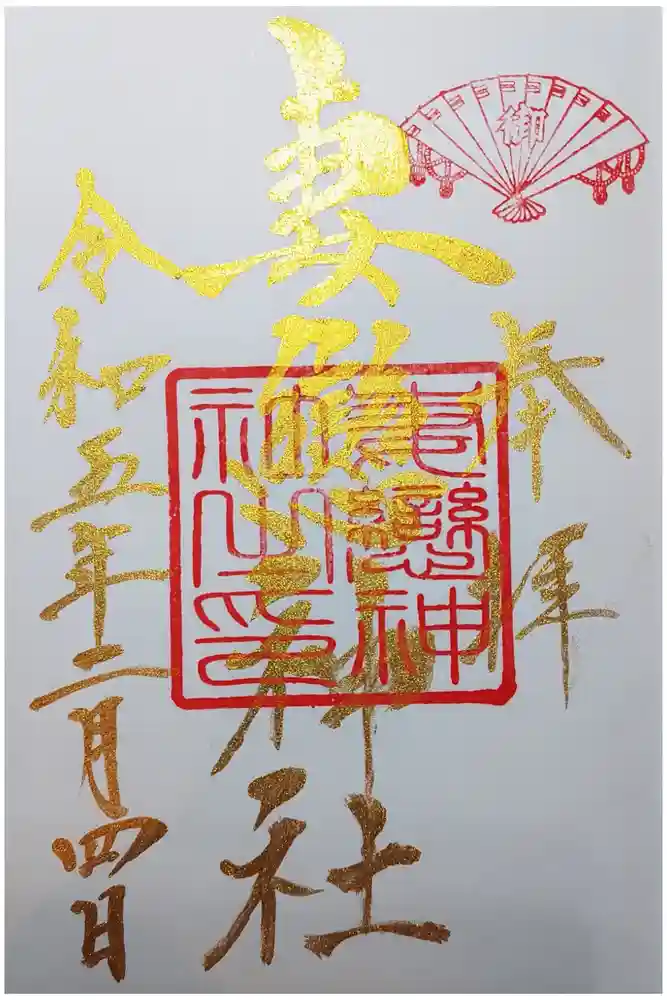 御
奉拝
妻戀神社
妻戀神社之印
令和五年二月四日